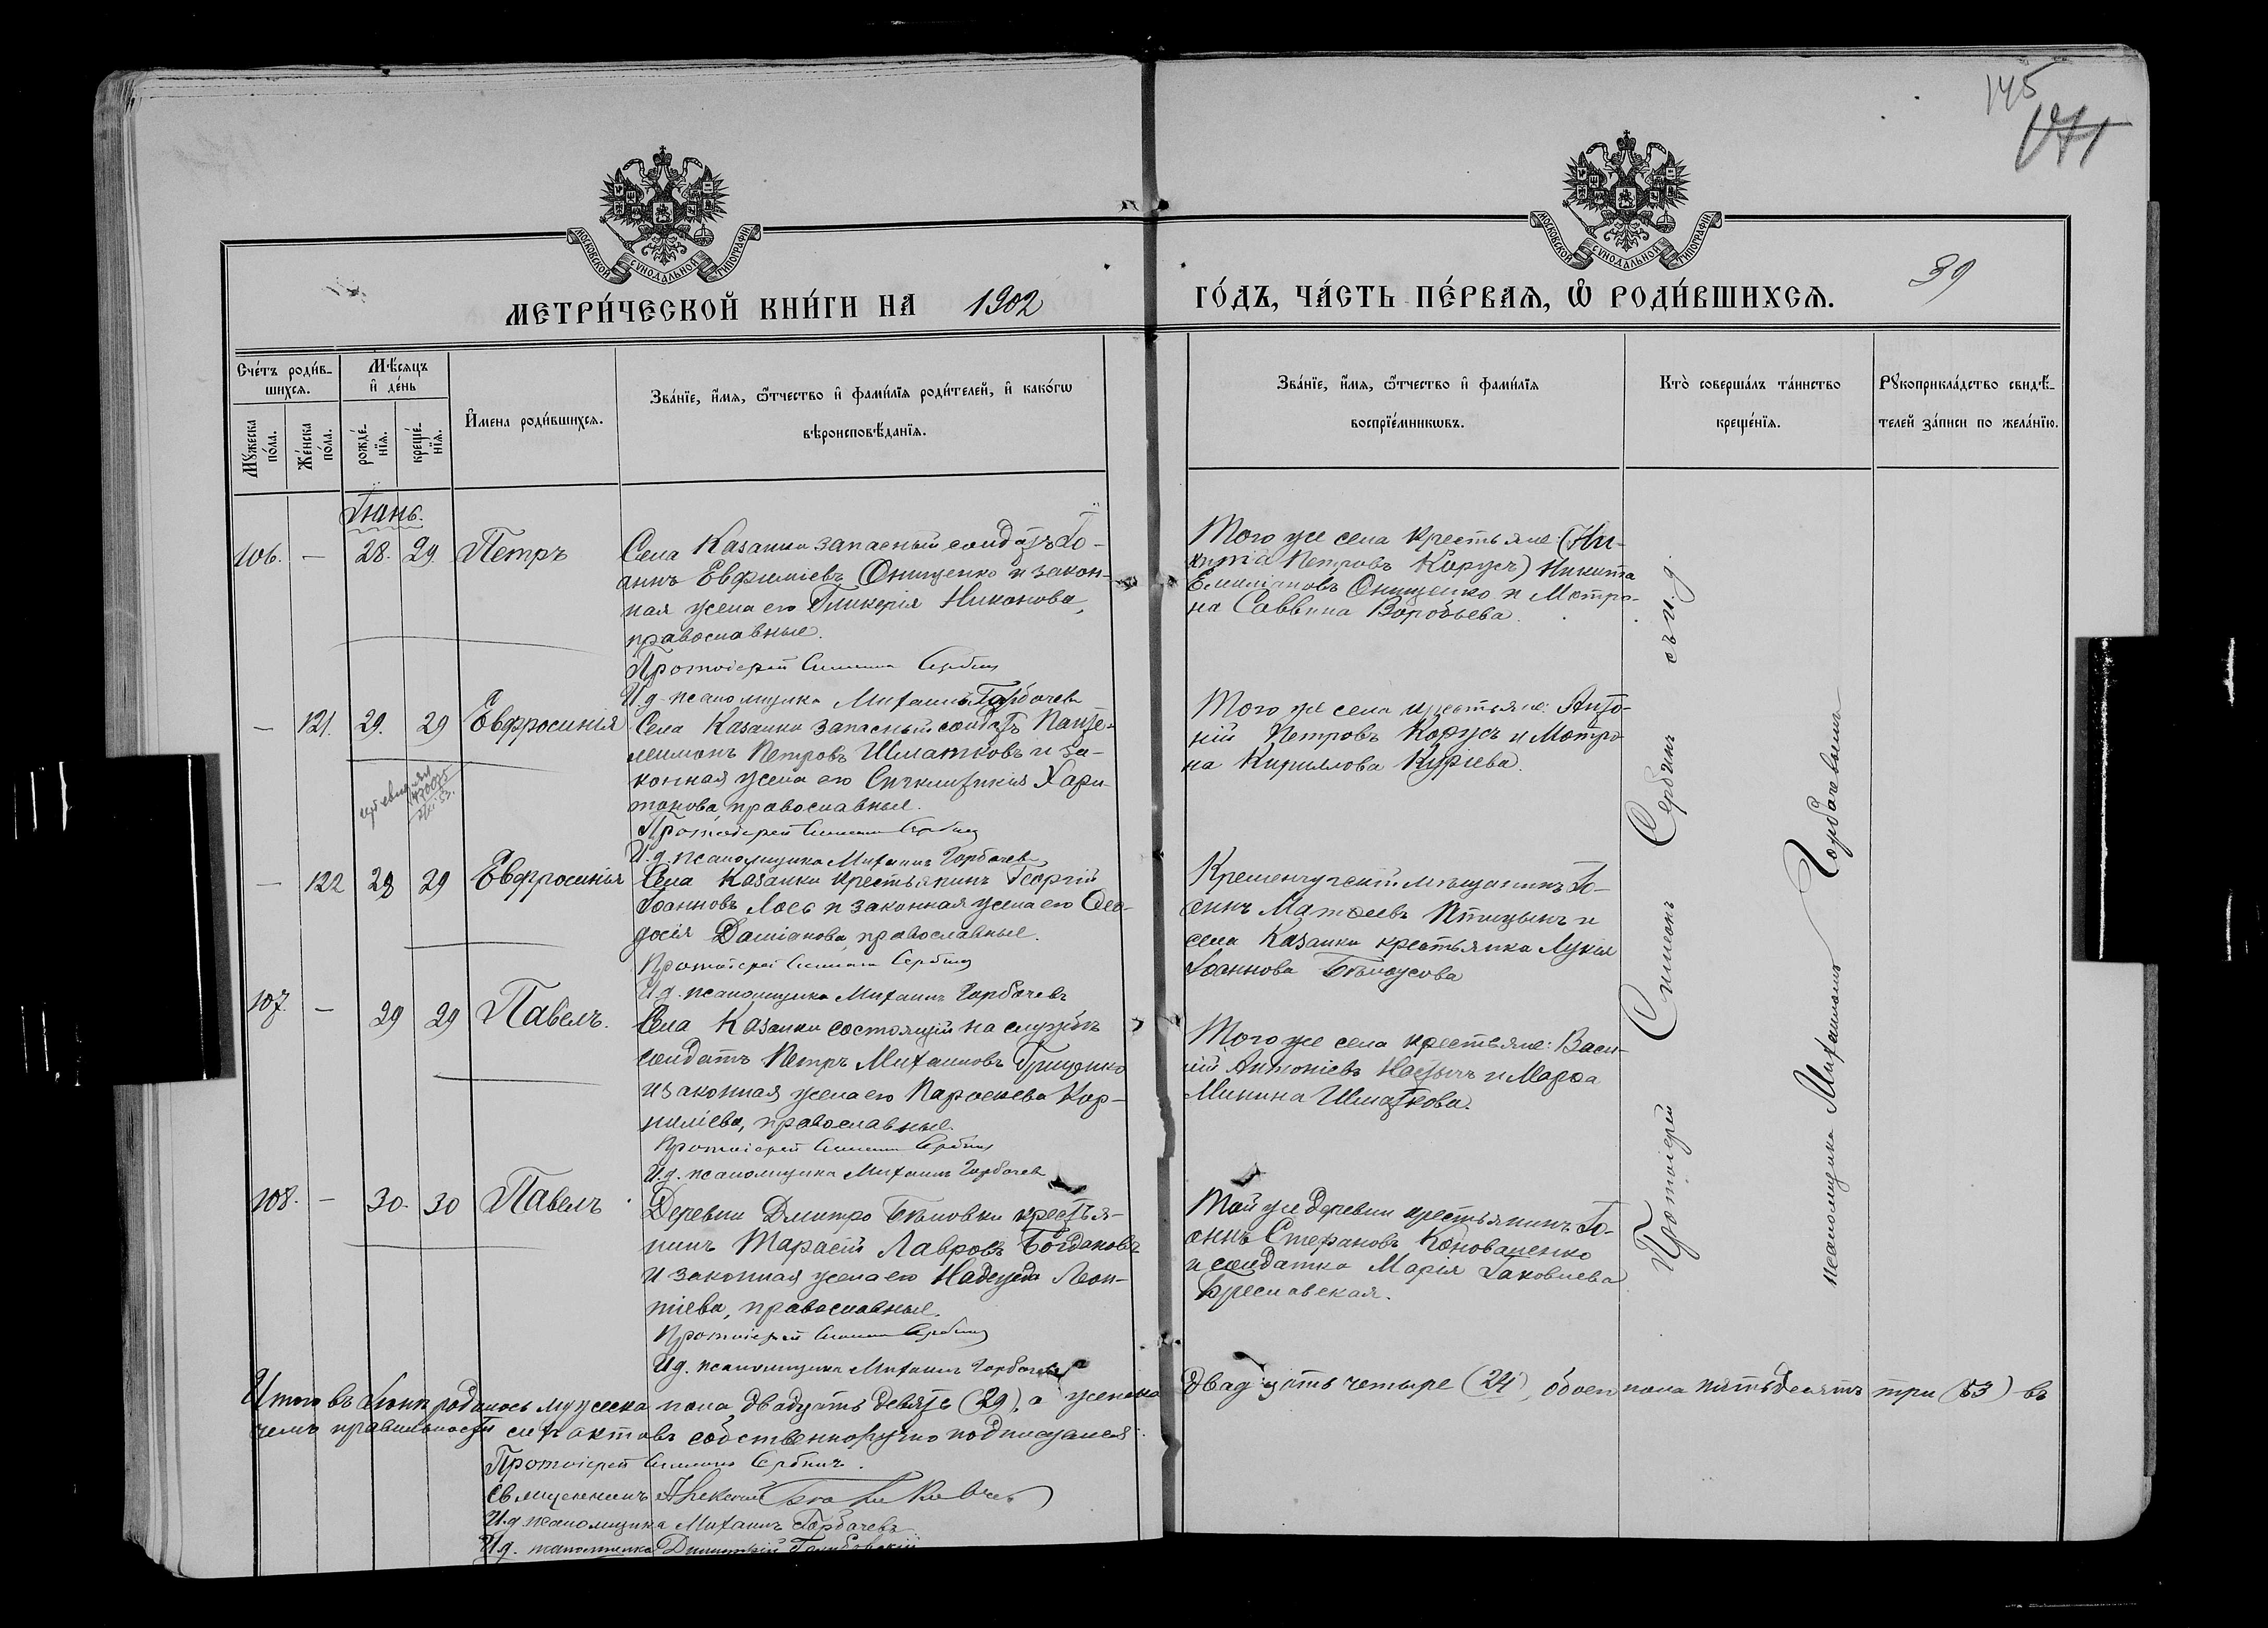 145
171
МОСКОВСКОЙ СѴНОДАЛЬНОЙ ТИПОГРАФІИ
МОСКОВСКОЙ СѴНОДАЛЬНОЙ ТИПОГРАФІИ
МЕТРИ́ЧЕСКОЙ КНИ́ГИ НА 1902 ГО́ДЪ, ЧА́СТЬ ПЕ́РВАѦ, Ѡ҆ РОДИ́ВШИХСѦ.
39
Сче́тъ роди́в-
шихсѧ.
Мꙋ́жеска
по́ла.
Же́нска
по́ла.
Мѣ́сѧцъ
и҆ де́нь
рожде́-
нїѧ.
креще́-
нїѧ.
И҆мена роди́вшихсѧ.
Зва́нїе, и҆́мѧ, ѻ҆́тчество и҆ фами́лїѧ роди́телей, и҆ како́гѡ
вѣроисповѣ́данїѧ.
Зва́нїе, и҆́мѧ, ѻ҆́тчество и҆ фами́лїѧ
воспрїе́мникѡвъ.
Кто̀ соверша́лъ та́инство
креще́нїѧ.
Рꙋкоприкла́дство свидѣ́-
телей за́писи по жела́нїю.
Іюнь.
106. — 28. 29. Петръ
Села Казанки запасный солдатъ Іо-
аннъ Евфиміевъ Онищенко и закон-
ная жена его Гликерія Никонова,
православные.
Протоіерей Симеонъ Сербинъ
И.д. псаломщика Михаилъ Горбачевъ
Того же села крестьяне: (Ни-
кита Петровъ Корусъ) Никита
Емиліановъ Онищенко и Матро-
на Саввина Воробьева.
— 121. 29. 29 Евфросинія
Села Казанки запасный солдатъ Панте-
леимонъ Петровъ Шматковъ и за-
конная жена его Сигклитикія Хари-
тонова, православные.
Протоіерей Симеонъ Сербинъ
И.д. псаломщика Михаилъ Горбачевъ
Того же села крестьяне: Анто-
ній Петровъ Корусъ и Матро-
на Кириллова
— 122 28 29 Евфросинія
Села Казанки крестьянинъ Георгій
Іоанновъ Лось и законная жена его Ѳео-
досія Даміанова, православные.
Протоіерей Симеонъ Сербинъ
И.д. псаломщика Михаилъ Горбачевъ
Кременчугскій мѣщанинъ Іо-
аннъ Матѳеевъ Птицынъ и
села Казанки крестьянка Лукія
Іоаннова Бѣлоусова
107. — 29 29 Павелъ.
Села Казанки состоящій на службѣ
солдатъ Петръ Михаиловъ Грищенко
и законная жена его Параскева Кор-
ниліева, православные.
Протоіерей Симеонъ Сербинъ
И.д. псаломщика Михаилъ Горбачевъ
Того же села крестьяне: Васи-
лій Антоніевъ и Марѳа
Минина Шматкова.
108. — 30. 30 Павелъ
Деревни Дмитро Бѣловки крестья-
нинъ Тарасій Лавровъ Богдановъ
и законная жена его Надежда Леон-
тіева, православные.
Протоіерей Симеонъ Сербинъ
И.д. псаломщика Михаилъ Горбачевъ
Той же деревни крестьянинъ Іо-
аннъ Стефановъ Коноваленко
и солдатка Марія Іаковлева
Бреславская.
Протоіерей Симеонъ Сербинъ съ и.д.
псаломщика Михаиломъ Горбачевымъ
Итого въ Іюнѣ родилось мужеска пола двадцать девять (29), а женска двадцать четыре (24), обоего пола пятьдесятъ три (53) въ
чемъ правильности сихъ актовъ собственноручно подписуемся.
Протоіерей Симеонъ Сербинъ.
Священникъ Алексій
И.д. псаломщика Михаилъ Горбачевъ
И.д. псаломщика Димитрій